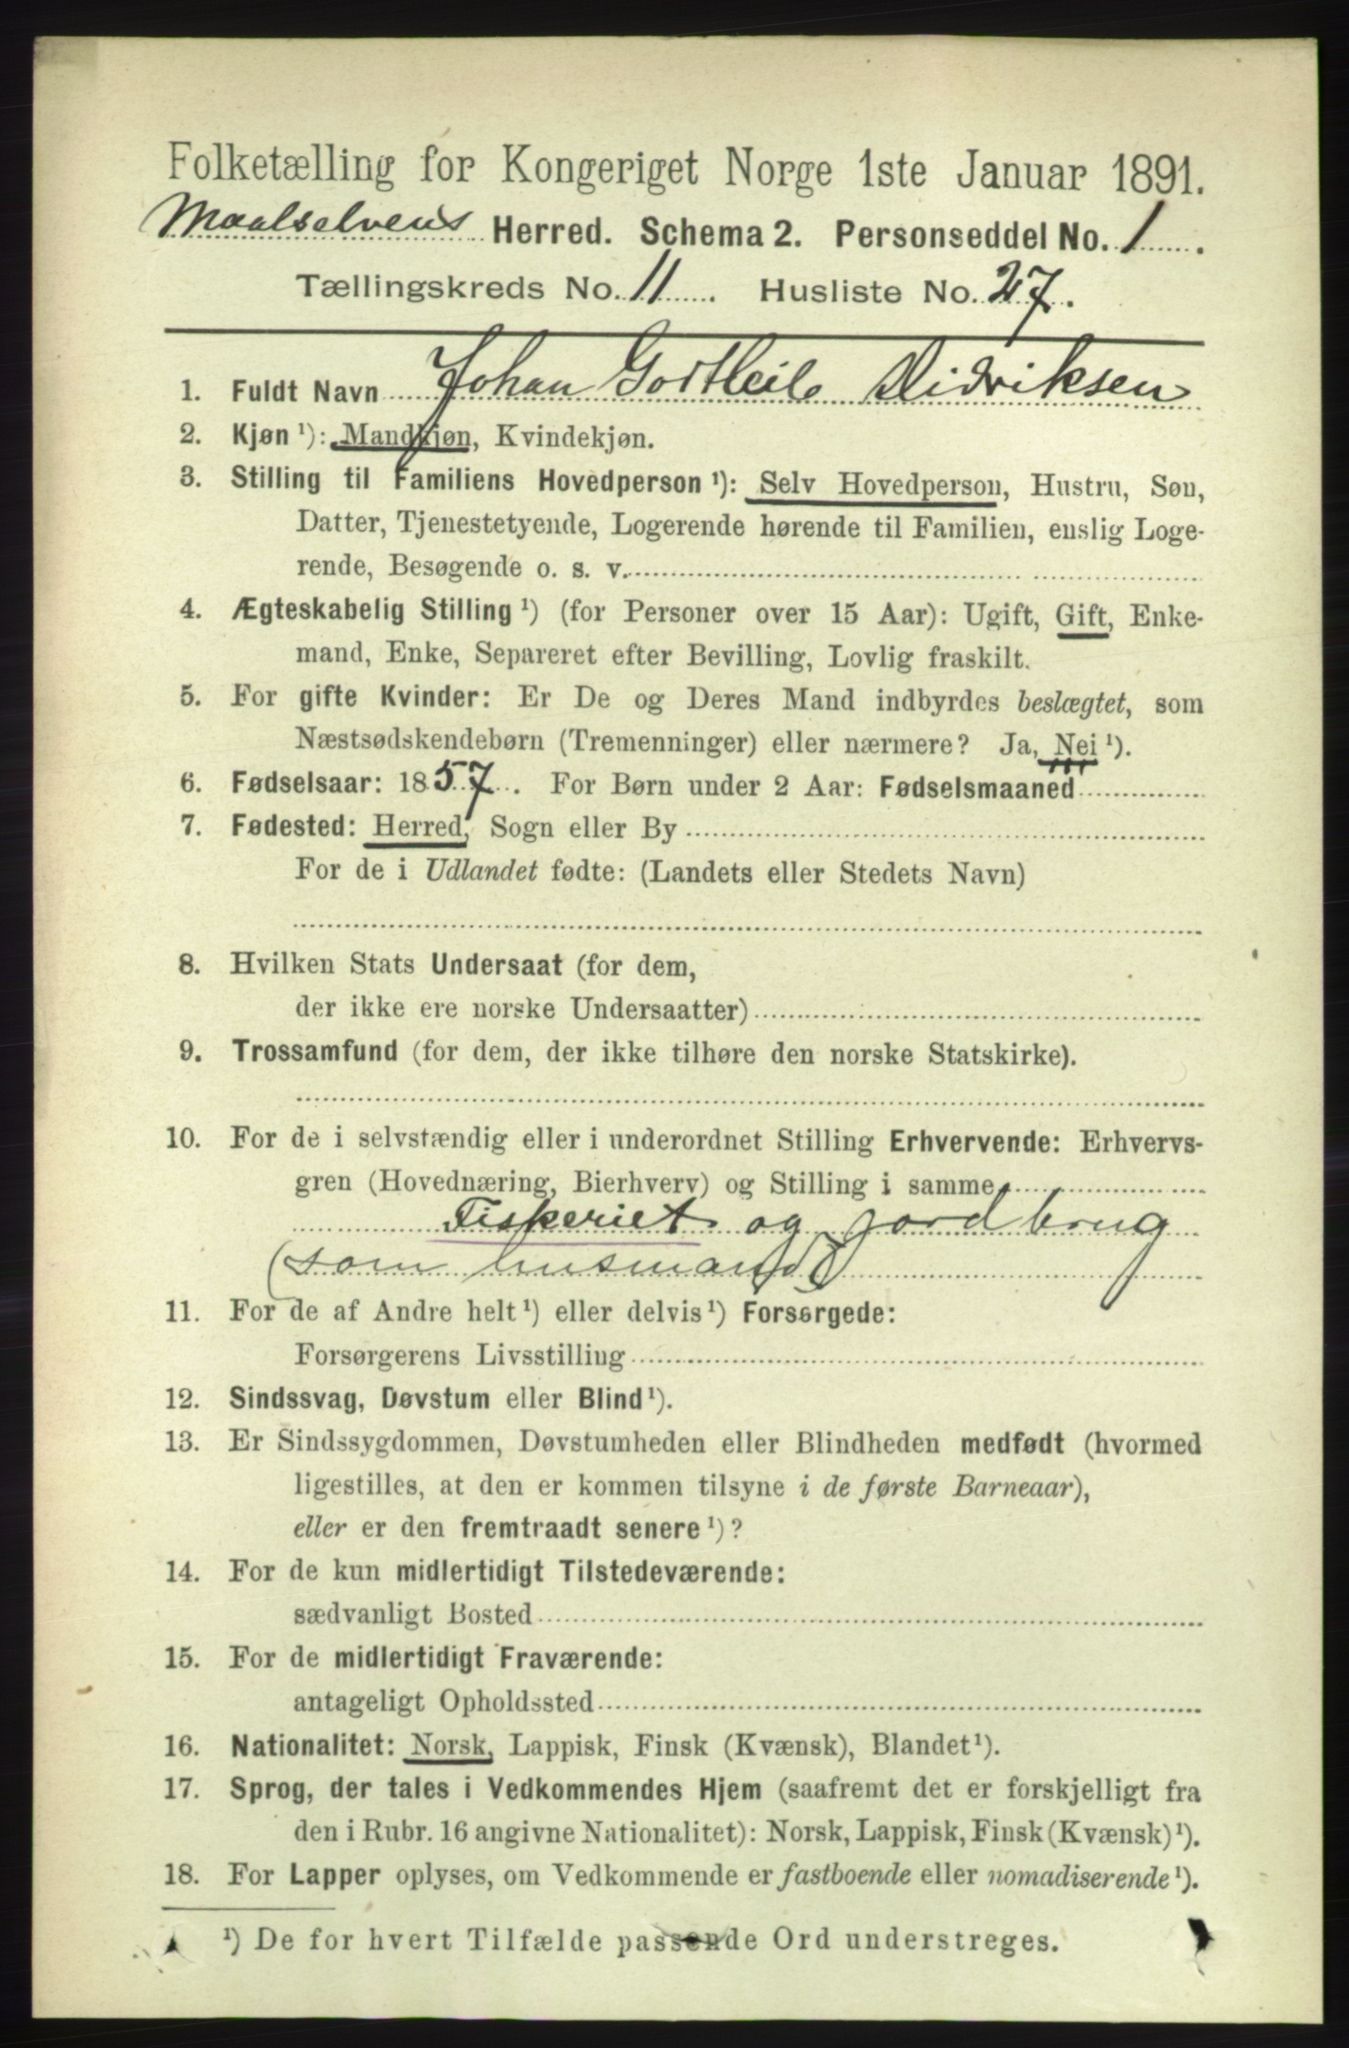 Folketælling for Kongeriget Norge 1ste Januar 1891.
Maalselvens Herred. Schema 2. Personseddel No. 1.
Tællingskreds No. 11. Husliste No. 27.
1. Fuldt Navn Johan Gottleib Didriksen
2. Kjøn ¹): Mandkjøn, Kvindekjøn.
3. Stilling til Familiens Hovedperson ¹): Selv Hovedperson, Hustru, Søn,
Datter, Tjenestetyende, Logerende hørende til Familien, enslig Loge-
rende, Besøgende o. s. v.
4. Ægteskabelig Stilling ¹) (for Personer over 15 Aar): Ugift, Gift, Enke-
mand, Enke, Separeret efter Bevilling, Lovlig fraskilt.
5. For gifte Kvinder: Er De og Deres Mand indbyrdes beslægtet, som
Næstsødskendebørn (Tremenninger) eller nærmere? Ja, Nei ¹).
6. Fødselsaar: 1857. For Børn under 2 Aar: Fødselsmaaned
7. Fødested: Herred, Sogn eller By
For de i Udlandet fødte: (Landets eller Stedets Navn)
8. Hvilken Stats Undersaat (for dem,
der ikke ere norske Undersaatter)
9. Trossamfund (for dem, der ikke tilhøre den norske Statskirke).
10. For de i selvstændig eller i underordnet Stilling Erhvervende: Erhvervs-
gren (Hovednæring, Bierhverv) og Stilling i samme
Fiskeriet og jordbrug
(som husmand)
11. For de af Andre helt ¹) eller delvis ¹) Forsørgede:
Forsørgerens Livsstilling
12. Sindssvag, Døvstum eller Blind ¹).
13. Er Sindssygdommen, Døvstumheden eller Blindheden medfødt (hvormed
ligestilles, at den er kommen tilsyne i de første Barneaar),
eller er den fremtraadt senere ¹)?
14. For de kun midlertidigt Tilstedeværende:
sædvanligt Bosted
15. For de midlertidigt Fraværende:
antageligt Opholdssted
16. Nationalitet: Norsk, Lappisk, Finsk (Kvænsk), Blandet ¹).
17. Sprog, der tales i Vedkommendes Hjem (saafremt det er forskjelligt fra
den i Rubr. 16 angivne Nationalitet): Norsk, Lappisk, Finsk (Kvænsk) ¹).
18. For Lapper oplyses, om Vedkommende er fastboende eller nomadiserende ¹).
¹) De for hvert Tilfælde passende Ord understreges.